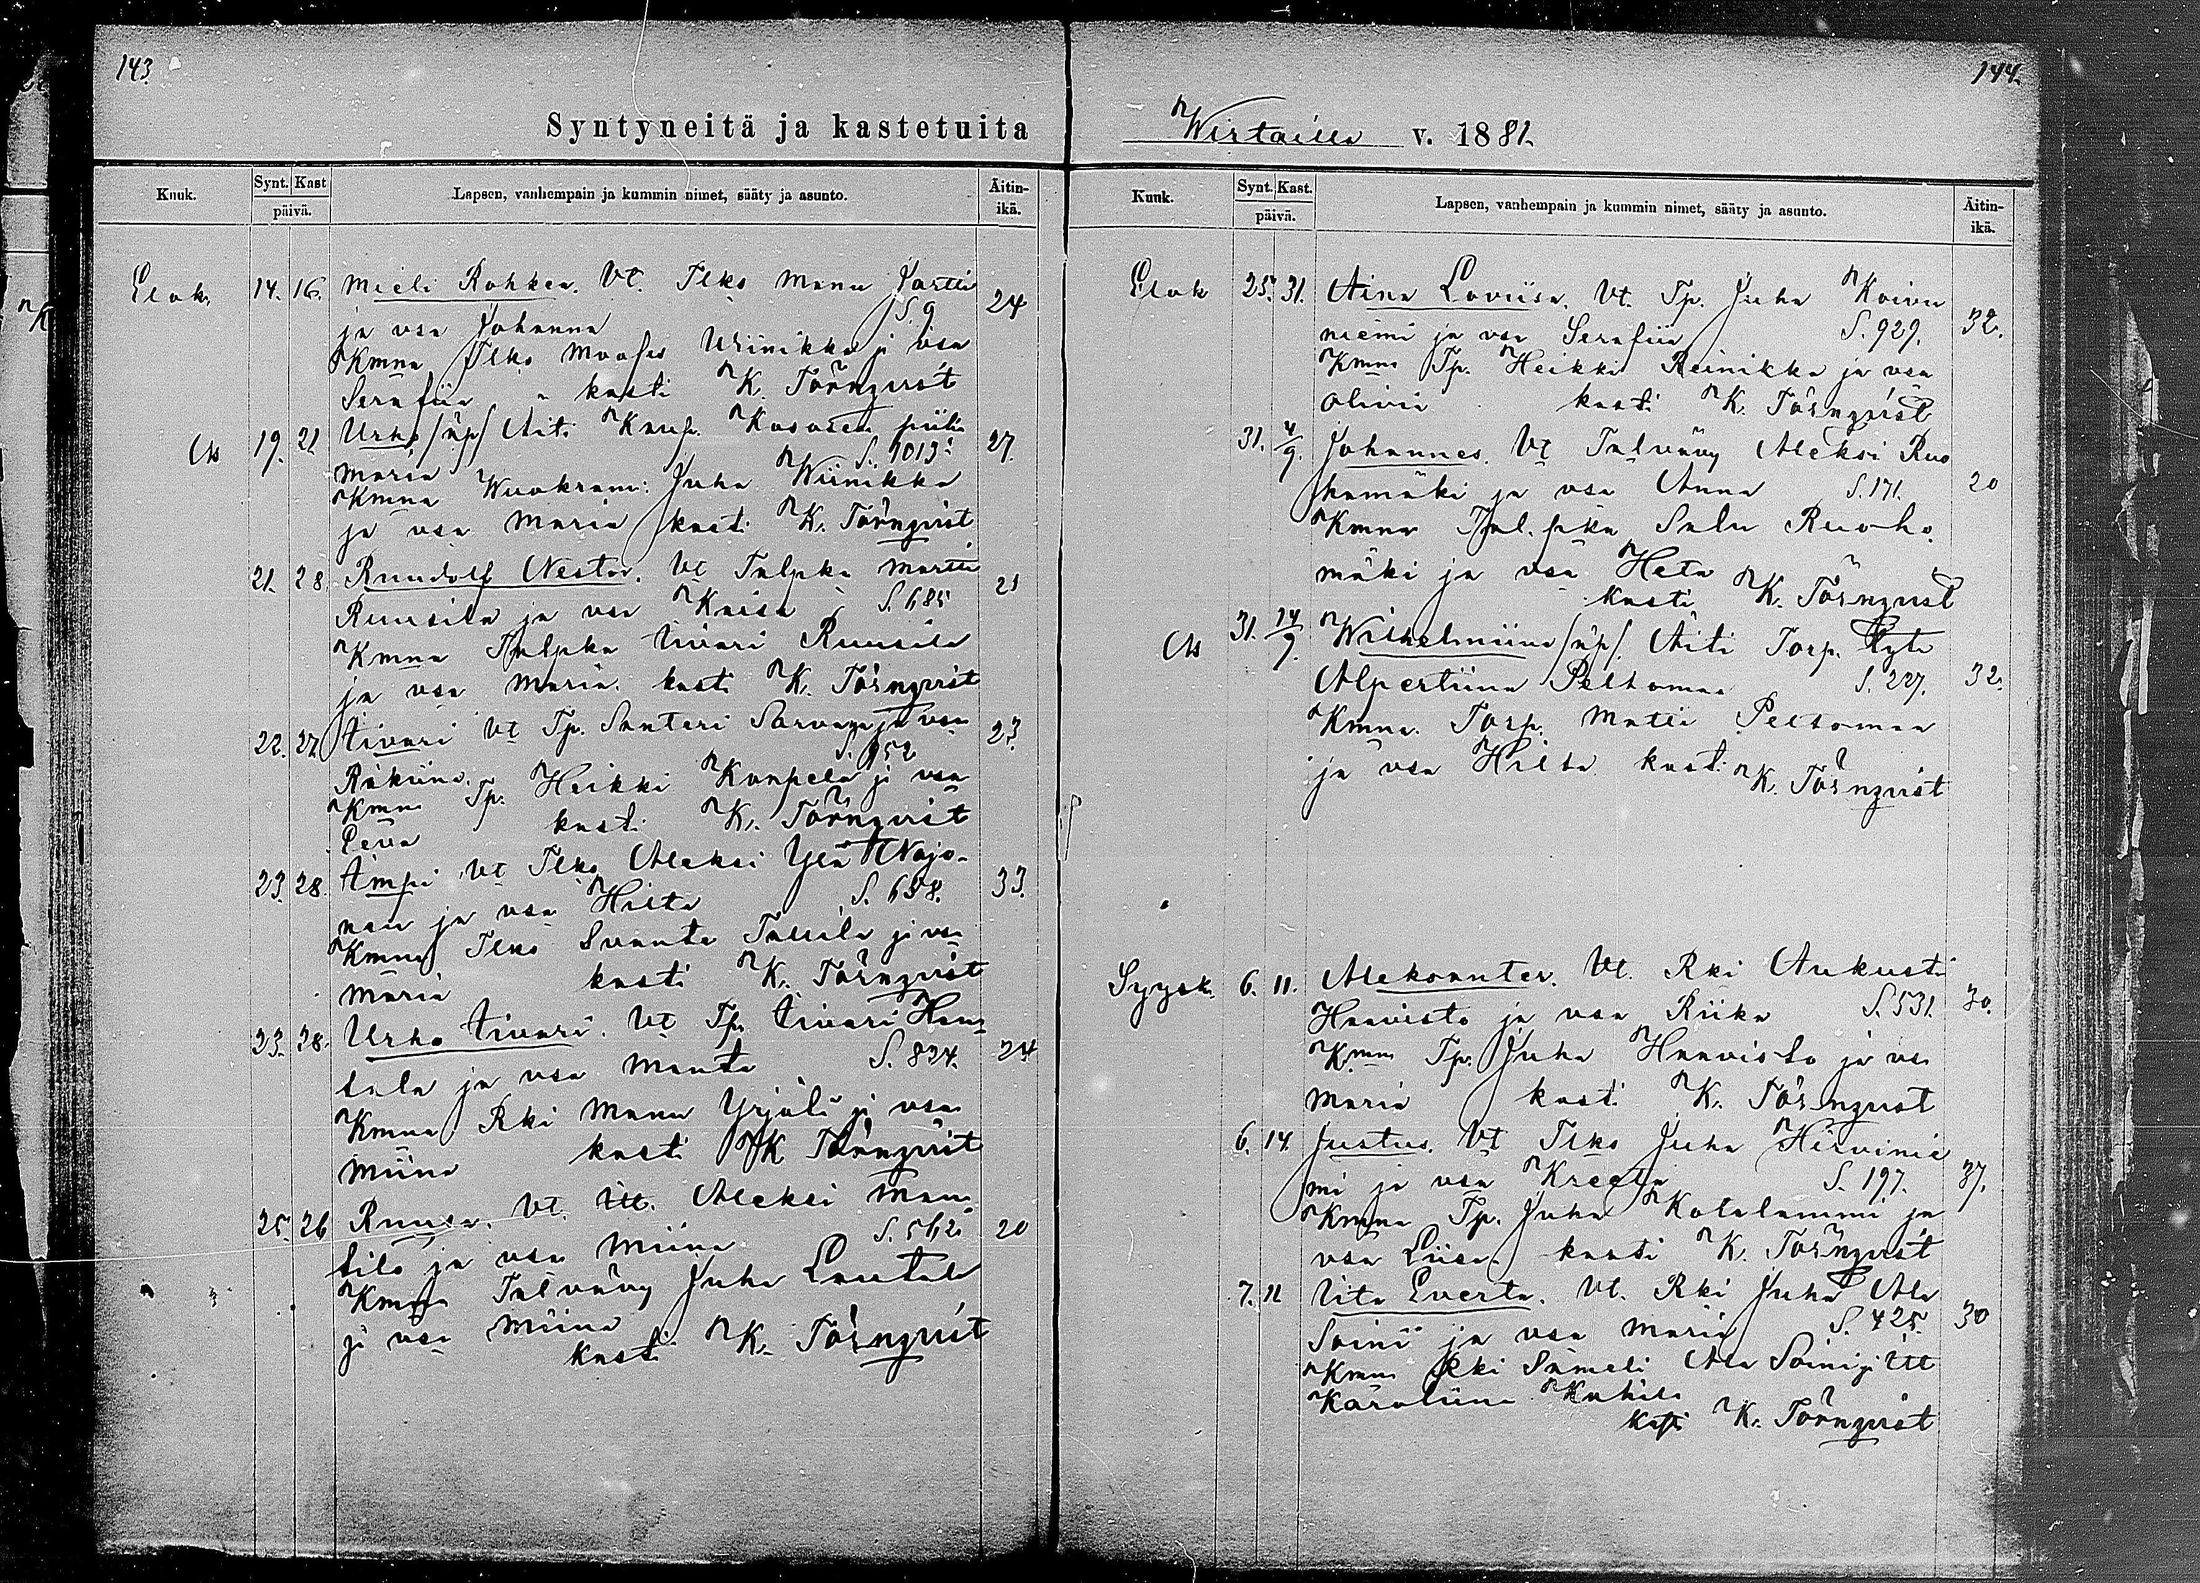 143.
Syntyneitä ja kastetuita
Kuuk. Synt. Kast päivä. Lapsen, vanhempain ja kummin nimet, sääty ja asunto. Äitin-ikä.
Elok. 14. 16. Mieli Rohkea. Vt. Tlks Manu Jartti 24
ja vsa Johanna S. 9
Kmna Tlks Moofes Wiinikka ja vsa
Serafiia kasti K. Törnqvist
19. 21 Urho /äp/ Äiti Knuf. Kosasen piika 27.
Maria S. 1013
Kmna Wuokram: Juha Wiinikka
ja vsa Maria kasti K. Törnqvist
21. 28. Ruudolf Nestor. Vt Talpka Martti 21
Ruusila ja vsa Kaisa S. 685
Kmna Talpka Iivari Ruusila
ja vsa Maria. kasti K. Törnqvist
22. 27 Iivari Vt Tp. Santeri Sarvana ja vsa 23.
Räkiina. S. 952
Kmna Tp. Heikki Kanpela ja vsa
Eeva kasti K. Törnqvist
23. 28. Ämpi Vt Tlks Aleksi Ylä Wajo- 33.
nen ja vsa Hilta S. 658.
Kmna Tlks Svante Tallila ja vsa
Maria kasti K. Törnqvist
23. 28. Urho Iivari. Vt Tp. Iivari Han- 24
sala ja vsa Manta S. 824.
Kmna Rki Manu Yrjälä ja vsa
Miina kasti K. Törnqvist
25. 26 Ruusa. Vt. Itt. Aleksi Man- 20
sila ja vsa Miina S. 562
Kmna Talvävy Juha Lautala
ja vsa Miina
kasti K. Törnqvist
144.
Wirtailla v. 1881.
Kuuk. Synt. Kast. päivä. Lapsen, vanhempain ja kummin nimet, sääty ja asunto. Äitin-ikä.
Elok 25. 31. Aina Loviisa. Vt. Tp. Juha Koivu 32.
niemi ja vsa Serafiia S. 929.
Kmna Tp. Heikki Reinikka ja vsa
Olivia kasti K. Törnqvist
31. 4/9. Johannes. Vt Talvävy Aleksi Ruo 20
hamäki ja vsa Anna S. 171.
Kmna Tal. pka Salu Ruoho
mäki ja vsa Heta
kasti K. Törnqvist
31. 14/9. Wilhelmiina /äp/. Äiti Torp. tytä 32.
Alpertiina Peltomaa S. 227.
Kmna. Torp. Matti Peltomaa
ja vsa Hilta kasti
K. Törnqvist
Syysk. 6. 11. Aleksanter. Vt. Rki Aukusti 30.
Haavisto ja vsa Riika S. 531.
Kmna Tp. Juha Haavisto ja vsa
Maria kasti K. Törnqvist
6. 14. Justus. Vt Tlks Juha Hirvinie 37.
mi ja vsa Kreeta S. 197.
Kmna Tp. Juha Kotalammi ja
vsa Liisa. kasti K. Törnqvist
7. 11 Iita Everta. Vt. Rki Juha Ala 30
Soini ja vsa Maria S. 425.
Kmna Rki Sameli Ala Soini ja Itt
Karoliina
Kasti K. Törnqvist